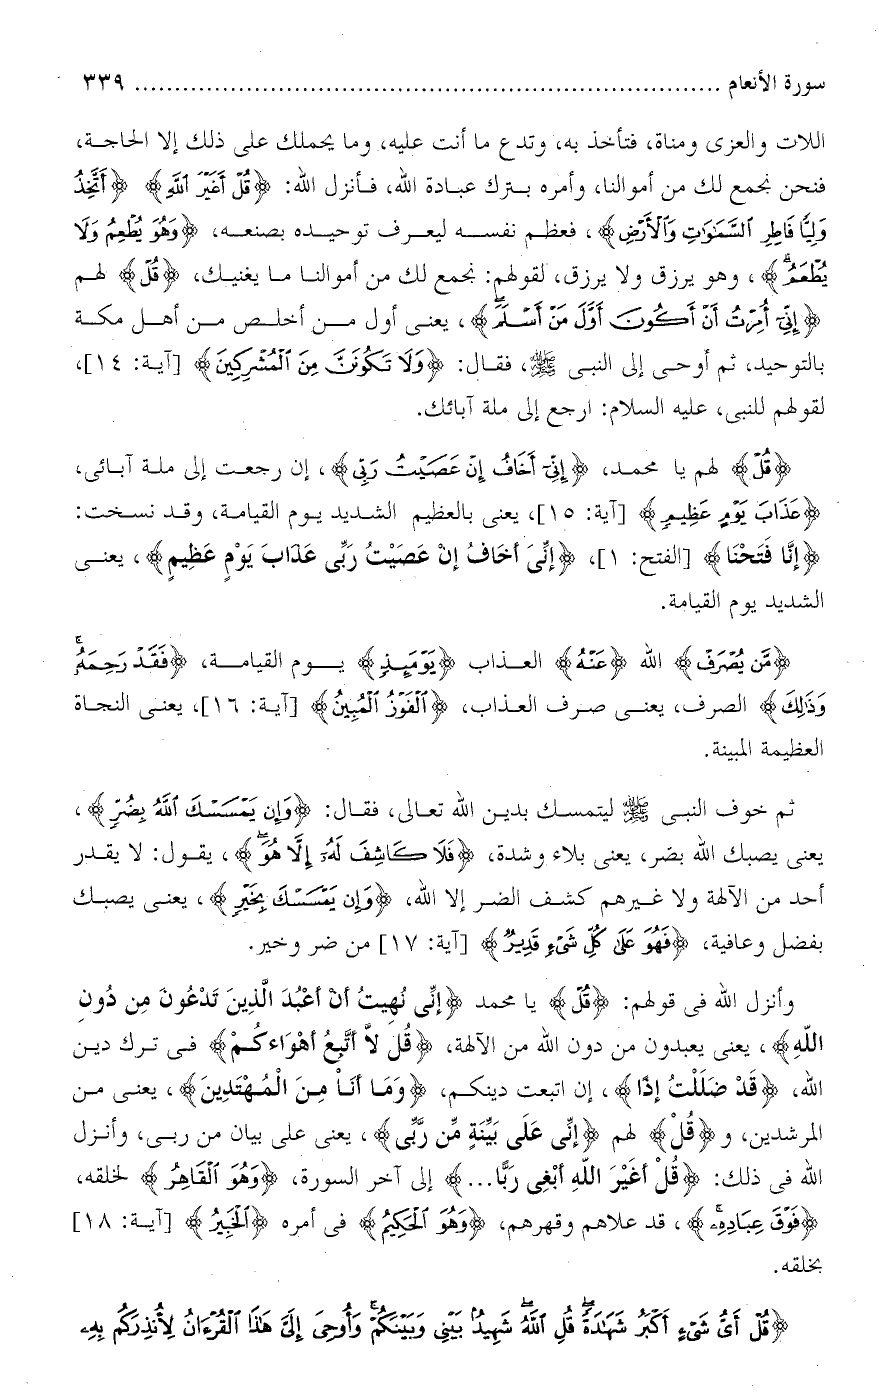 سورة الأنعام ........................................................................ ٣٣٩
اللات والعزى ومناة، فتأخذ به، وتدع ما أنت عليه، وما يحملك على ذلك إلا الحاجة،
فنحن نجمع لك من أموالنا، وأمره بترك عبادة الله، فأنزل الله: ﴿قُلْ أَغَيْرَ ٱللَّهِ﴾ ﴿أَتَّخِذُ
وَلِيًّا فَاطِرِ ٱلسَّمَٰوَٰتِ وَٱلْأَرْضِ﴾، فعظم نفسه ليعرف توحيده بصنعه، ﴿وَهُوَ يُطْعِمُ وَلَا
يُطْعَمُ ۗ﴾، وهو يرزق ولا يرزق، لقولهم: نجمع لك من أموالنا ما يغنيك، ﴿قُلْ﴾ لهم
﴿إِنِّىٓ أُمِرْتُ أَنْ أَكُونَ أَوَّلَ مَنْ أَسْلَمَ ۖ﴾، يعنى أول من أخلص من أهل مكة
بالتوحيد، ثم أوحى إلى النبى ﷺ، فقال: ﴿وَلَا تَكُونَنَّ مِنَ ٱلْمُشْرِكِينَ﴾ [آية: ١٤]،
لقولهم للنبى، عليه السلام: ارجع إلى ملة آبائك.
﴿قُلْ﴾ لهم يا محمد، ﴿إِنِّىٓ أَخَافُ إِنْ عَصَيْتُ رَبِّى﴾، إن رجعت إلى ملة آبائى،
﴿عَذَابَ يَوْمٍ عَظِيمٍ﴾ [آية: ١٥]، يعنى بالعظيم الشديد يوم القيامة، وقد نسخت:
﴿إِنَّا فَتَحْنَا﴾ [الفتح: ١]، ﴿إِنِّىَ أَخَافُ إِنْ عَصَيْتُ رَبِّى عَذَابَ يَوْمٍ عَظِيمٍ﴾، يعنى
الشديد يوم القيامة.
﴿مَّن يُصْرَفْ﴾ الله ﴿عَنْهُ﴾ العذاب ﴿يَوْمَئِذٍ﴾ يوم القيامة، ﴿فَقَدْ رَحِمَهُۥ ۚ
وَذَٰلِكَ﴾ الصرف، يعنى صرف العذاب، ﴿ٱلْفَوْزُ ٱلْمُبِينُ﴾ [آية: ١٦]، يعنى النجاة
العظيمة المبينة.
ثم خوف النبى ﷺ ليتمسك بدين الله تعالى، فقال: ﴿وَإِن يَمْسَسْكَ ٱللَّهُ بِضُرٍّ﴾،
يعنى يصبك الله بضر، يعنى بلاء وشدة، ﴿فَلَا كَاشِفَ لَهُۥٓ إِلَّا هُوَ ۖ﴾، يقول: لا يقدر
أحد من الآلهة ولا غيرهم كشف الضر إلا الله، ﴿وَإِن يَمْسَسْكَ بِخَيْرٍ﴾، يعنى يصبك
بفضل وعافية، ﴿فَهُوَ عَلَىٰ كُلِّ شَىْءٍ قَدِيرٌ﴾ [آية: ١٧] من ضر وخير.
وأنزل الله فى قولهم: ﴿قُلْ﴾ يا محمد ﴿إِنِّى نُهِيتُ أَنْ أَعْبُدَ الَّذِينَ تَدْعُونَ مِن دُونِ
اللَّهِ﴾، يعنى يعبدون من دون الله من الآلهة، ﴿قُل لاَّ أَتَّبِعُ أَهْوَاءكُمْ﴾ فى ترك دين
الله، ﴿قَدْ ضَلَلْتُ إِذًا﴾، إن اتبعت دينكم، ﴿وَمَا أَنَاْ مِنَ الْمُهْتَدِينَ﴾، يعنى من
المرشدين، و﴿قُلْ﴾ لهم ﴿إِنِّى عَلَى بَيِّنَةٍ مِّن رَّبِّى﴾، يعنى على بيان من ربى، وأنزل
الله فى ذلك: ﴿قُلْ أَغَيْرَ اللّهِ أَبْغِى رَبًّا...﴾ إلى آخر السورة، ﴿وَهُوَ ٱلْقَاهِرُ﴾ لخلقه،
﴿فَوْقَ عِبَادِهِۦ ۚ﴾، قد علاهم وقهرهم، ﴿وَهُوَ ٱلْحَكِيمُ﴾ فى أمره ﴿ٱلْخَبِيرُ﴾ [آية: ١٨]
بخلقه.
﴿قُلْ أَىُّ شَىْءٍ أَكْبَرُ شَهَٰدَةً ۖ قُلِ ٱللَّهُ ۖ شَهِيدٌۢ بَيْنِى وَبَيْنَكُمْ ۚ وَأُوحِىَ إِلَىَّ هَٰذَا ٱلْقُرْءَانُ لِأُنذِرَكُم بِهِۦ